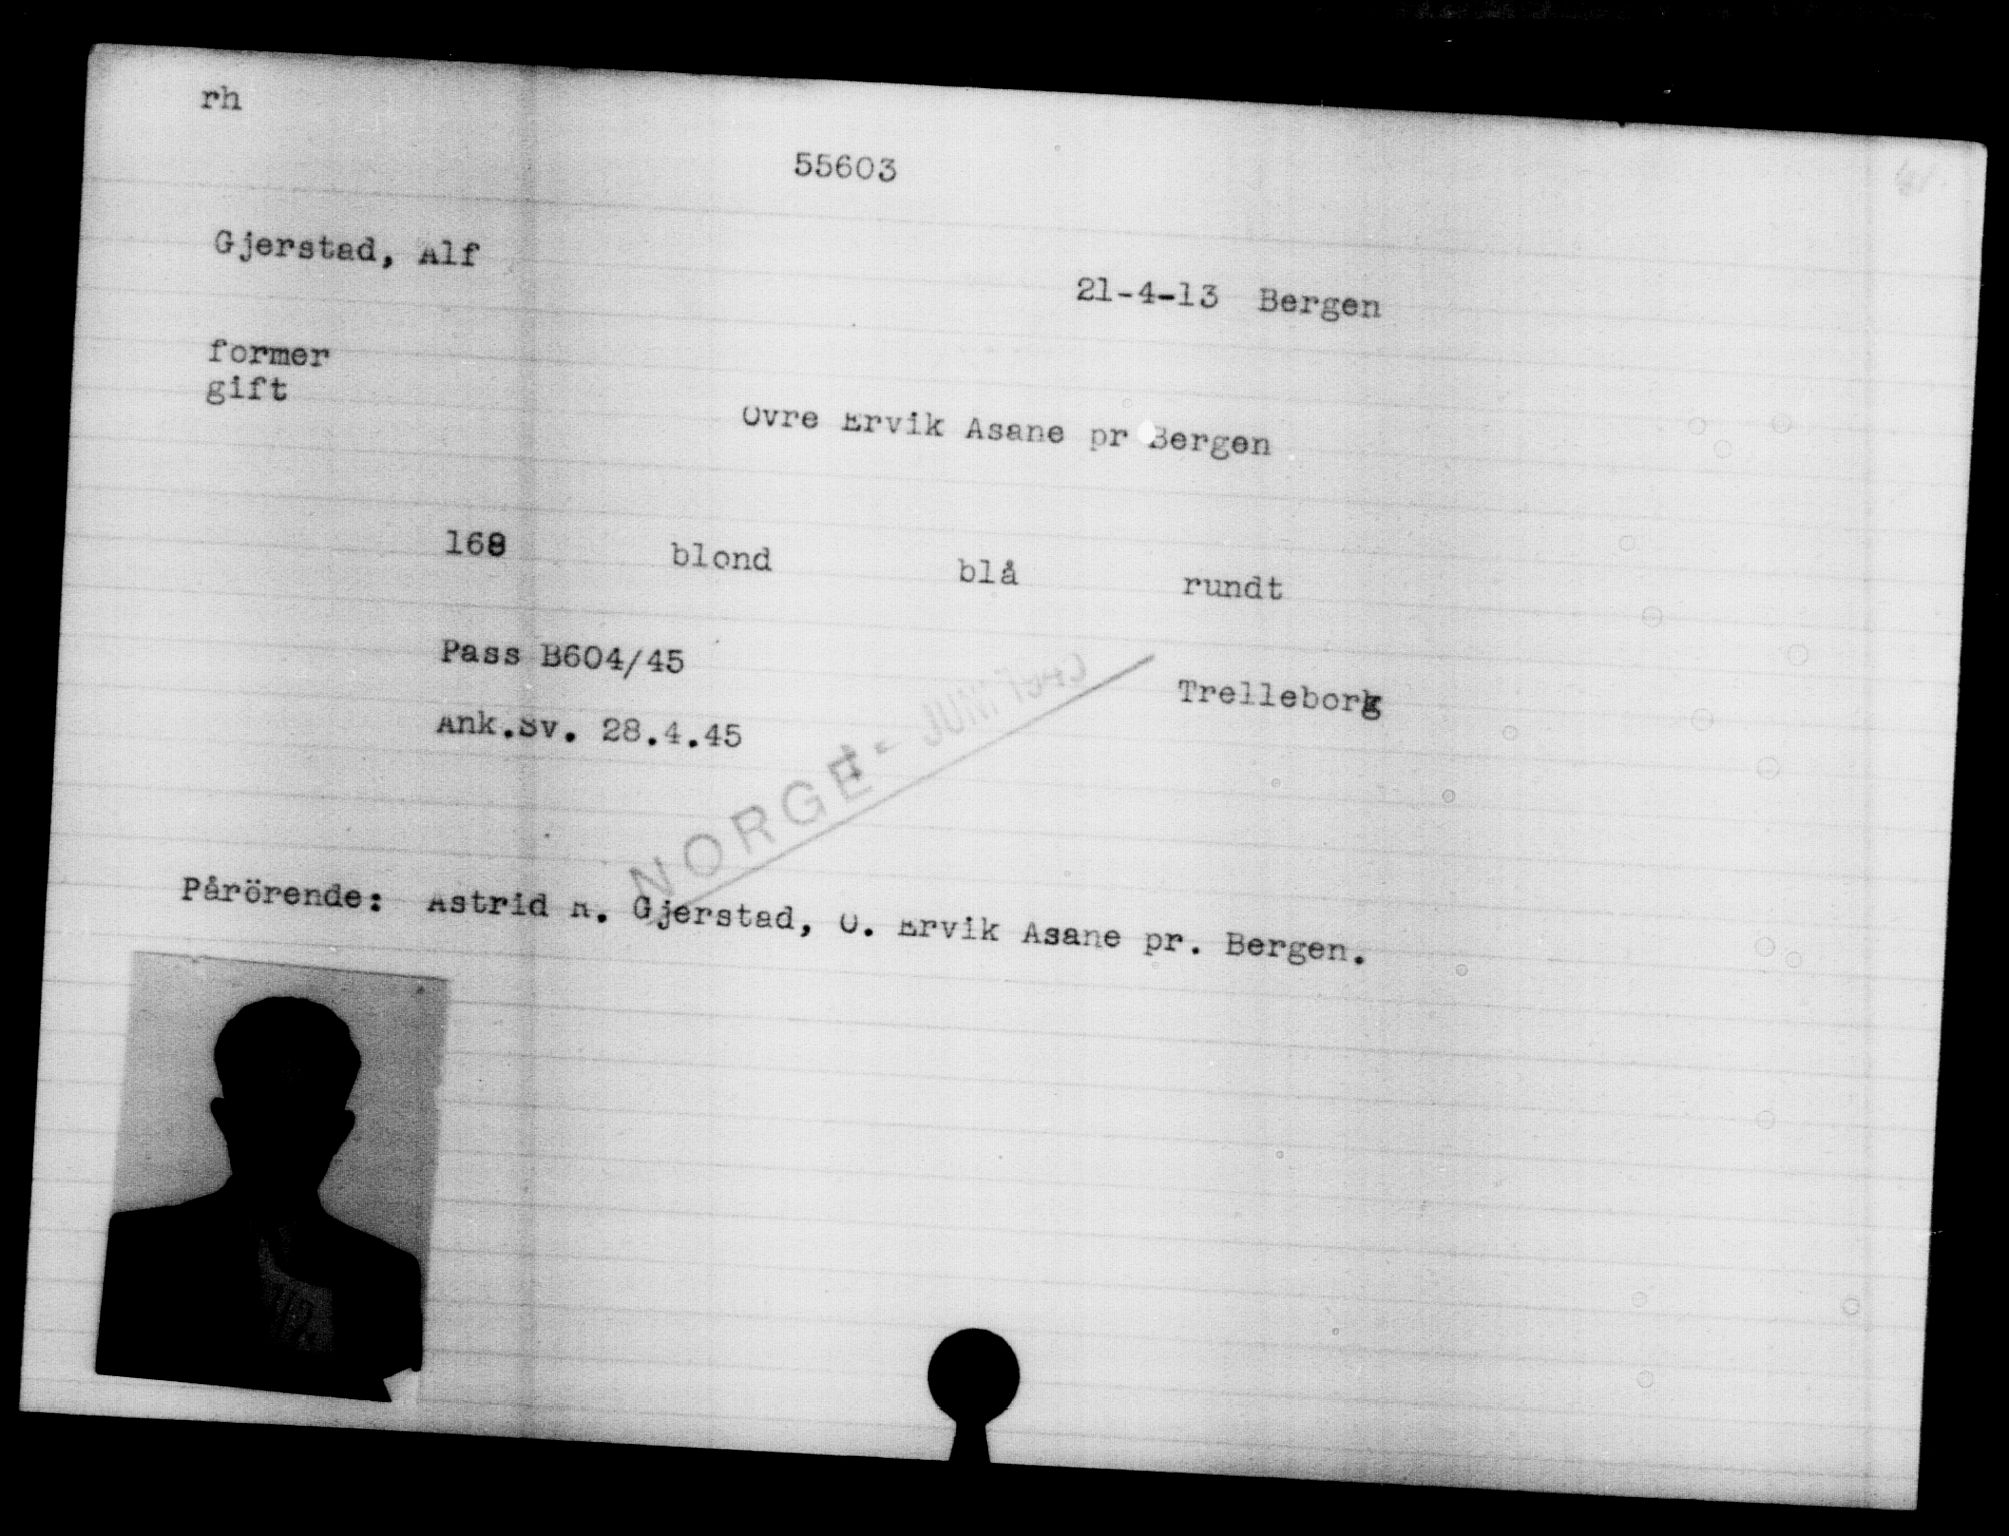 rh
55603
Gjerstad, Alf
21-4-13 Bergen
former
gift
Ovre Ervik Asane pr Bergen
168 blond blå rundt
Pass B604/45
Trelleborg
Ank.Sv. 28.4.45
NORGE 4 - JUNI 1945
Pårörende: Astrid A. Gjerstad, O. Ervik Asane pr. Bergen.